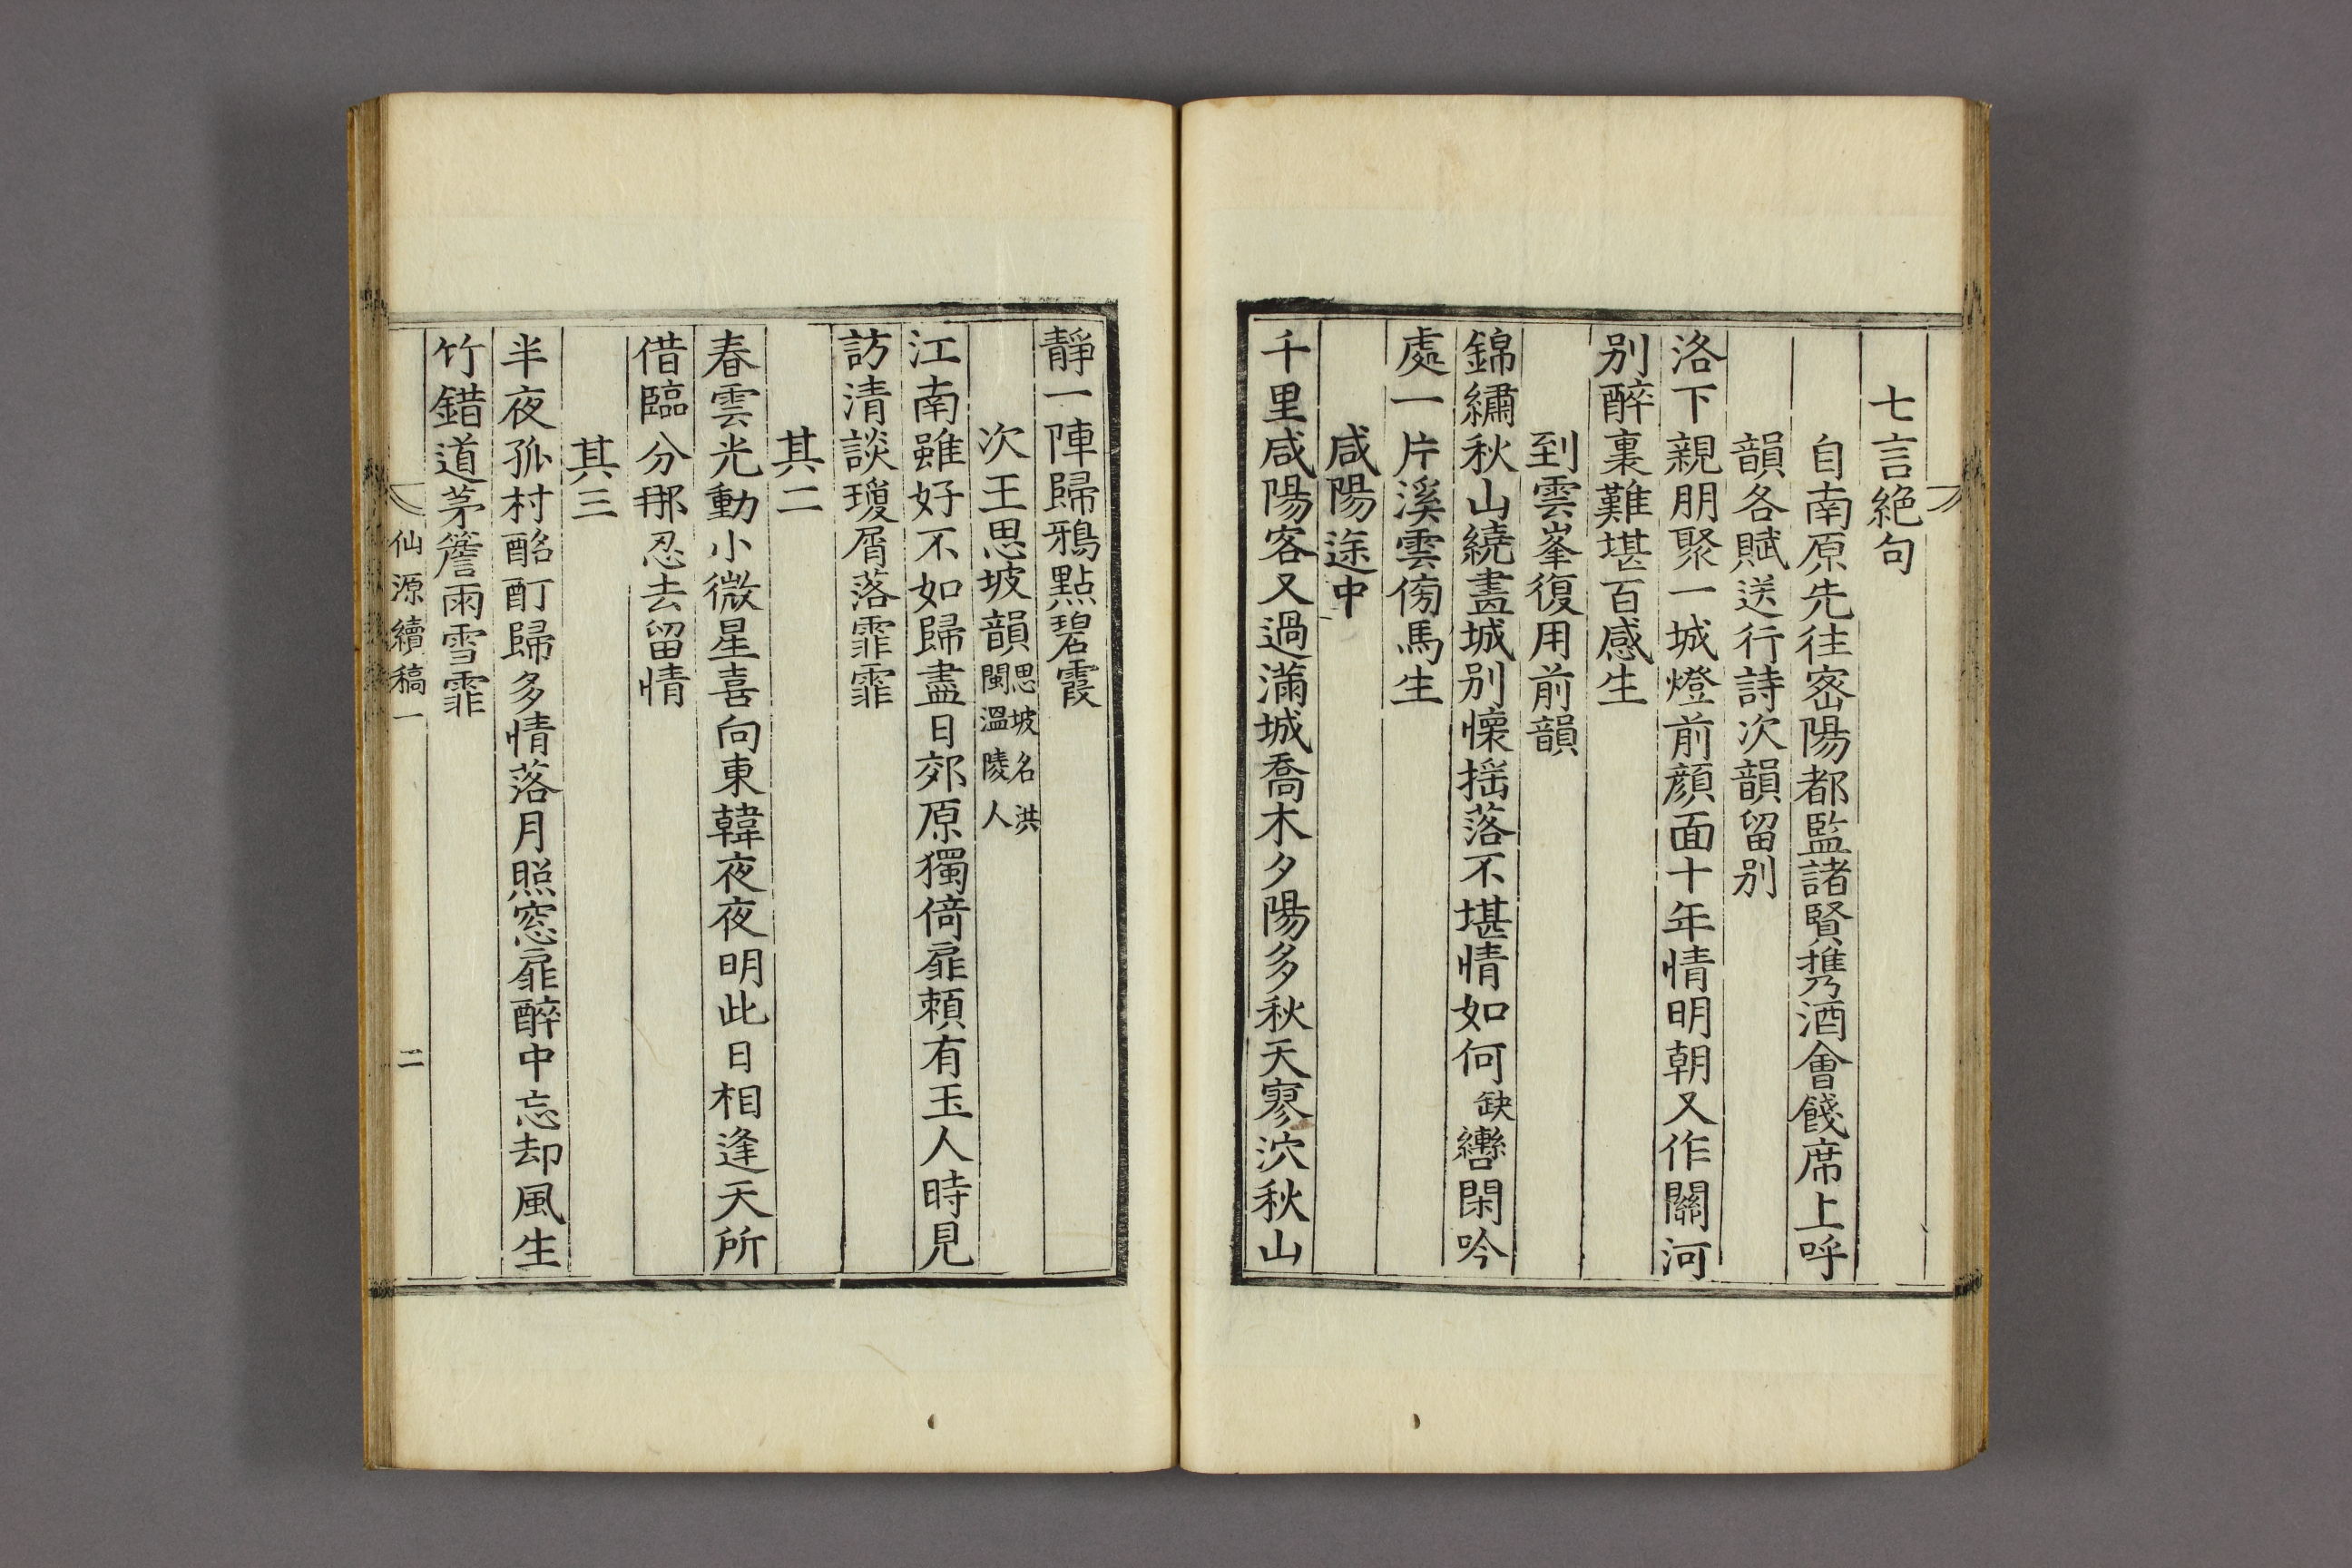 七言絶句
自南原先徃宻陽都監諸賢携酒會餞席上呼
韻各賦送行詩次韻留别
洛下親朋聚一城燈前顔面十年情明朝又作關河
别醉裏難堪百感生
到雲峯復用前韻
錦繡秋山繞畵城别懷揺落不堪情如何缺轡閑吟
處一片溪雲傍馬生
咸陽途中
千里咸陽客又過滿城喬木夕陽多秋天寥泬秋山
靜一陣歸鴉點碧霞
次王思坡韻思坡名洪閩溫陵人
江南雖好不如歸盡日郊原獨倚扉頼有玉人時見
訪清談瓊屑落霏霏
其二
春雲光動小微星喜向東韓夜夜明此日相逢天所
借臨分那忍去留情
其三
半夜孤村酩酊歸多情落月照窓扉醉中忘却風生
竹錯道茅簷雨雪霏
仙源續稿一 二